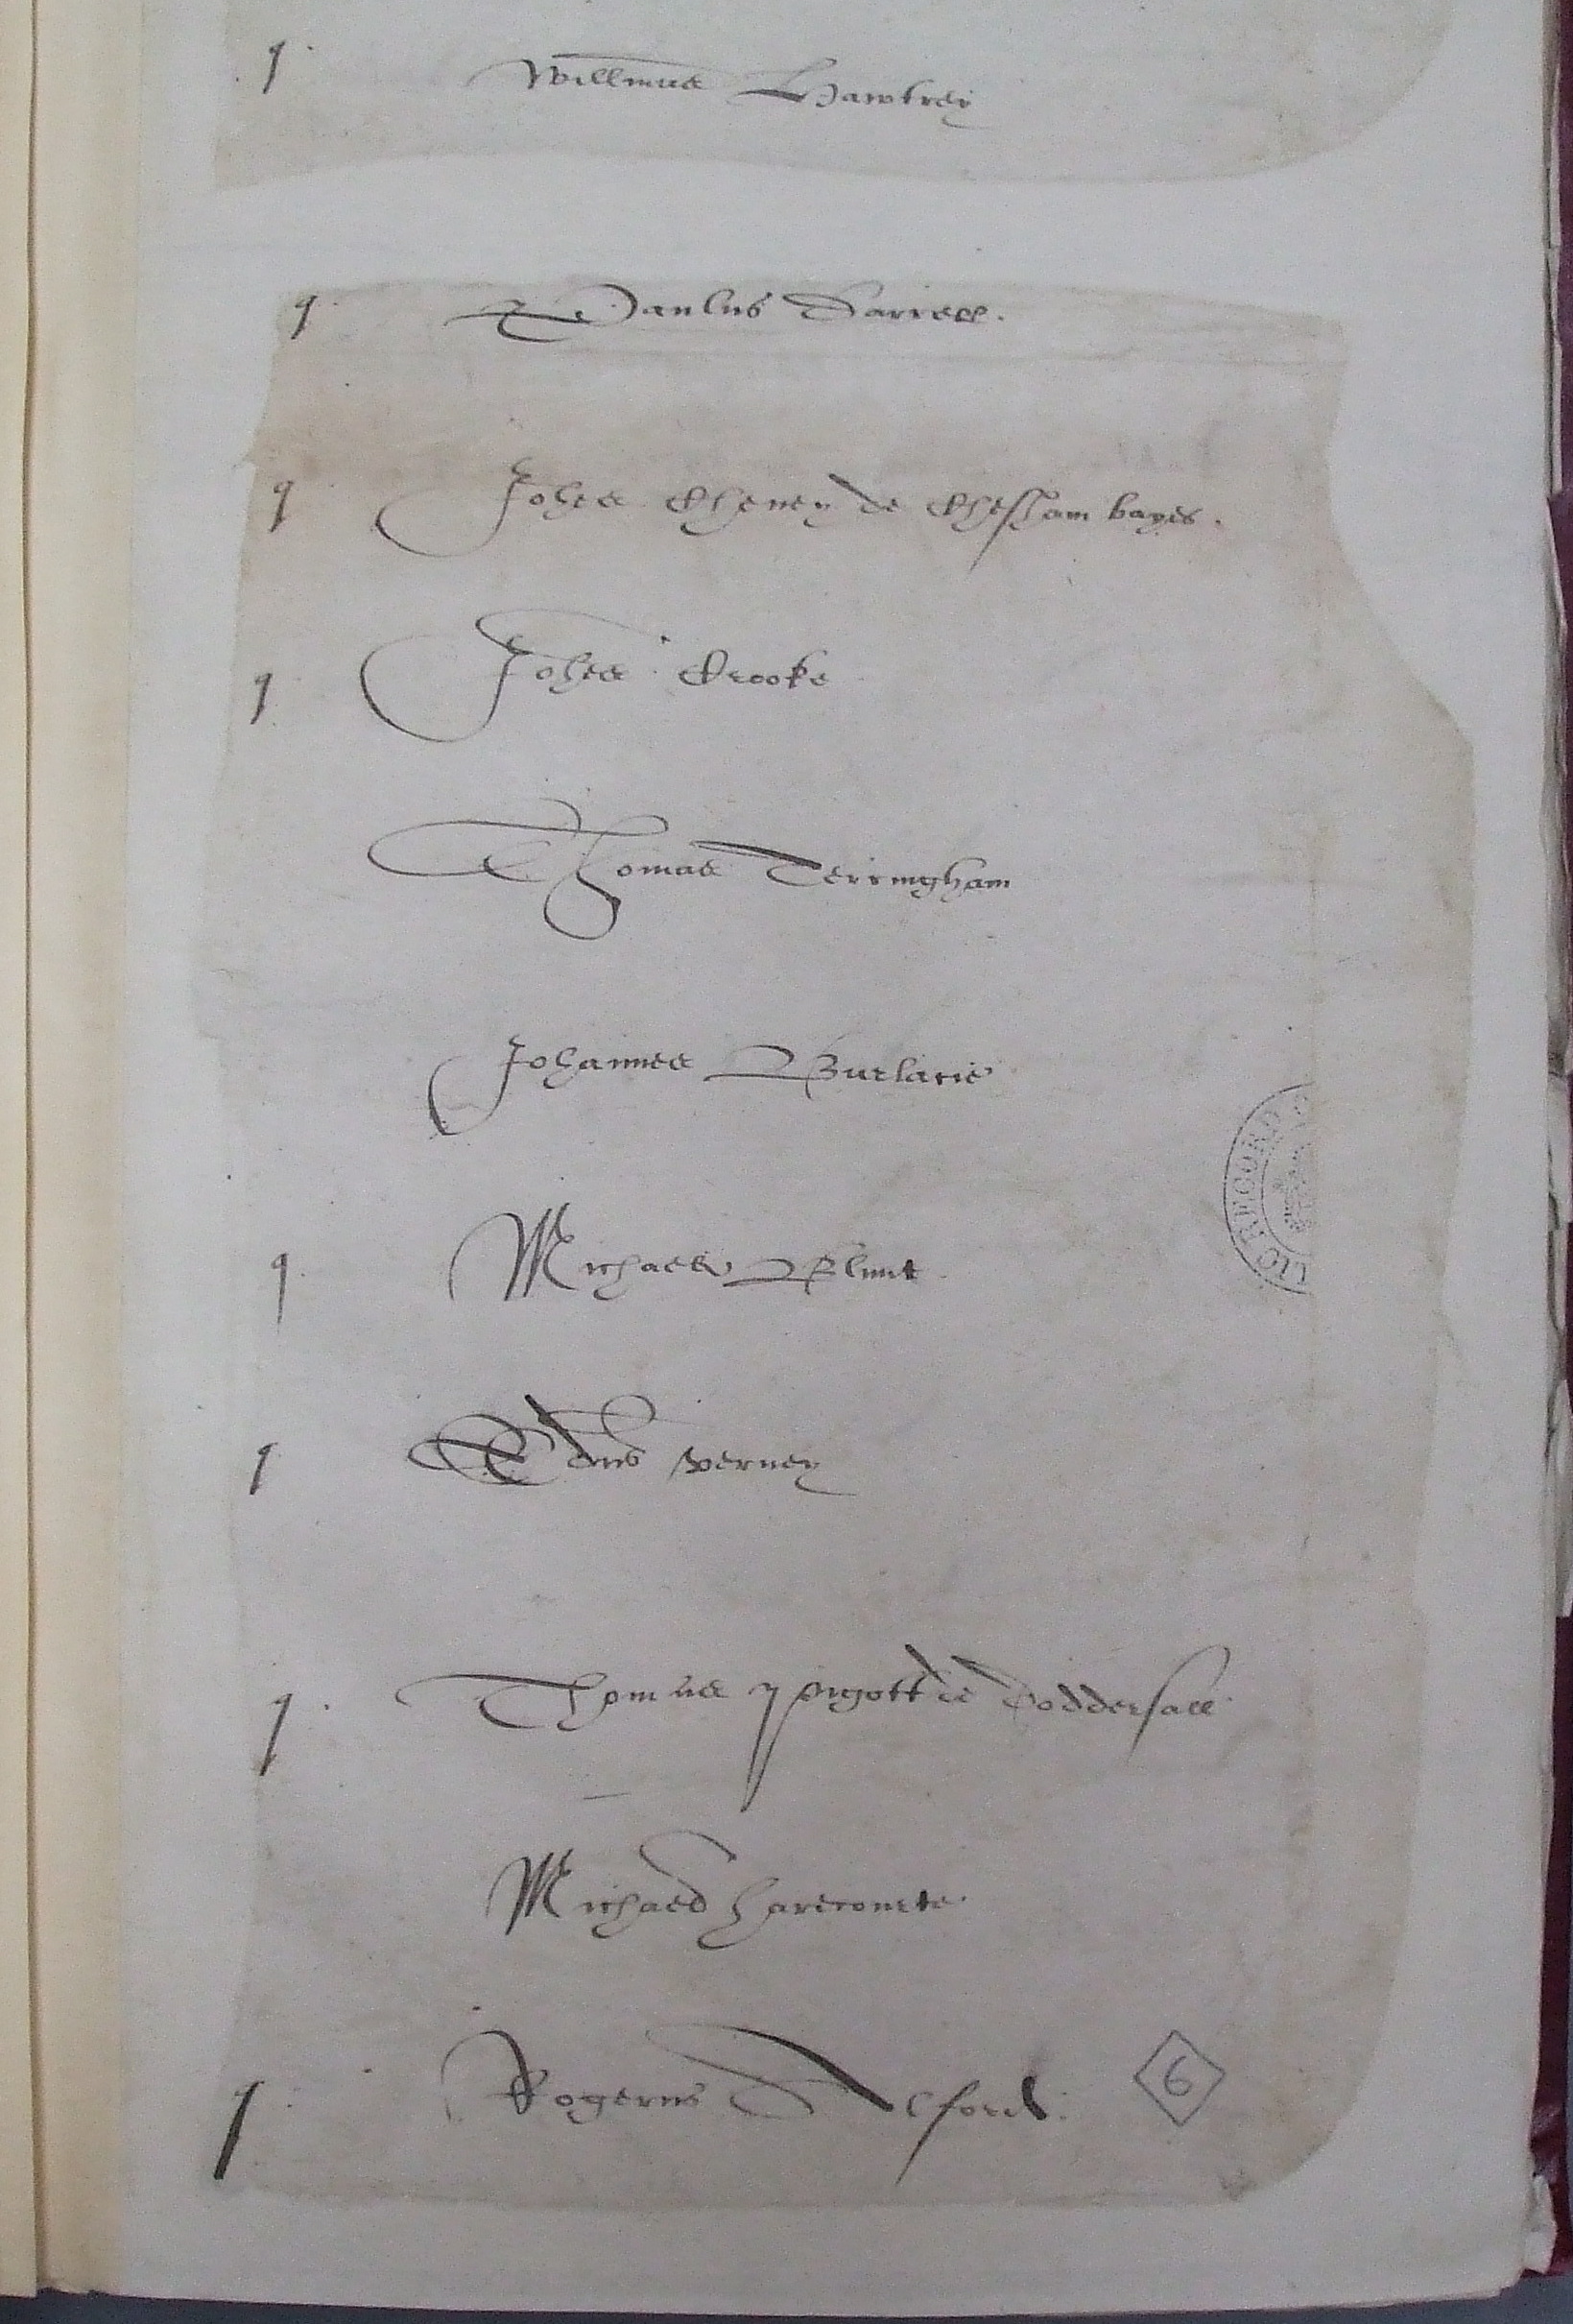 q Willmus Hawtrey
q Paulus Darrell.
q Johes Cheney de Chessham bayes.
q Johes Crooke
Thomas Terringham
Johannes Burlacie
q Michaell Blunt
q Edus Verney
q Thomas Pigott de Doddersall
Michaell Harecourte
q Rogerus Alford.
6
LIC RECORD O